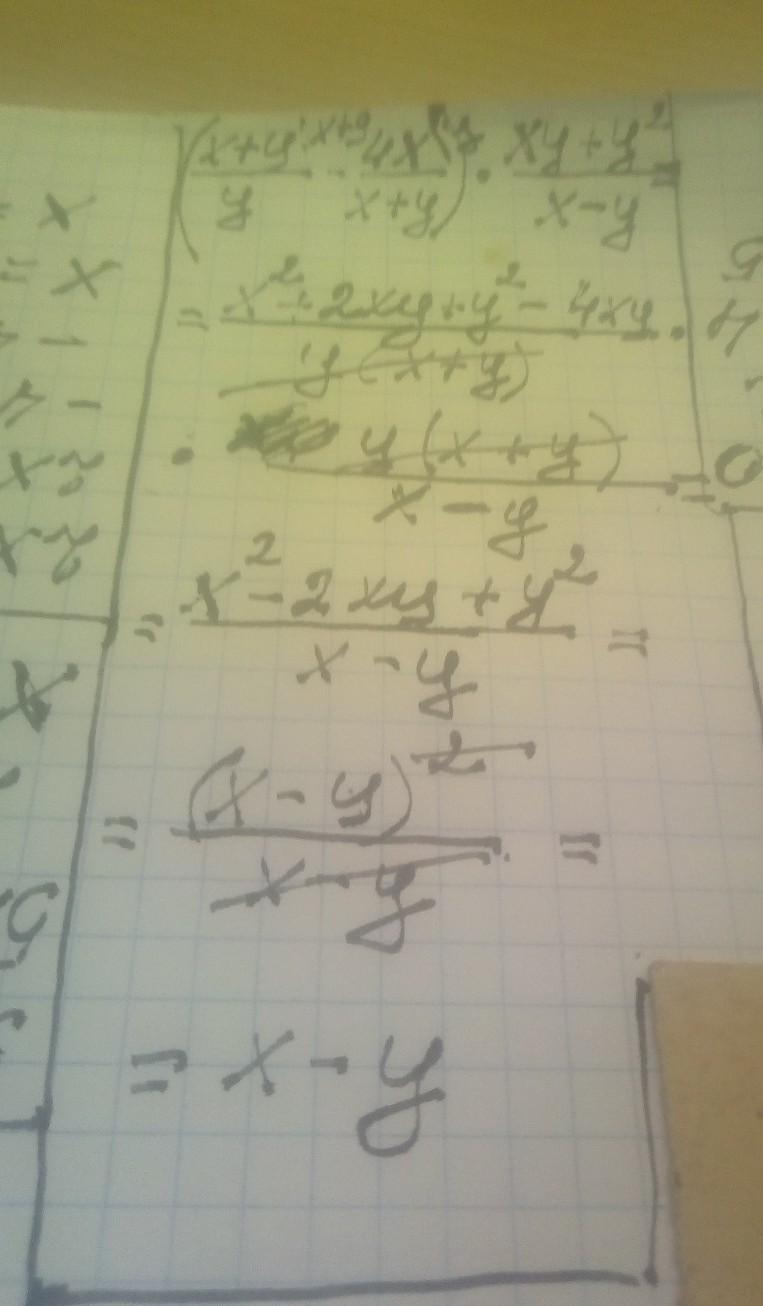 ((x+y)/y - 4x/(x+y)) · (xy+y²)/(x-y) =
= (x²+2xy+y²-4xy)/(y(x+y)) ·
· y(x+y)/(x-y) =
= (x²-2xy+y²)/(x-y) =
= (x-y)²/(x-y) =
= x-y